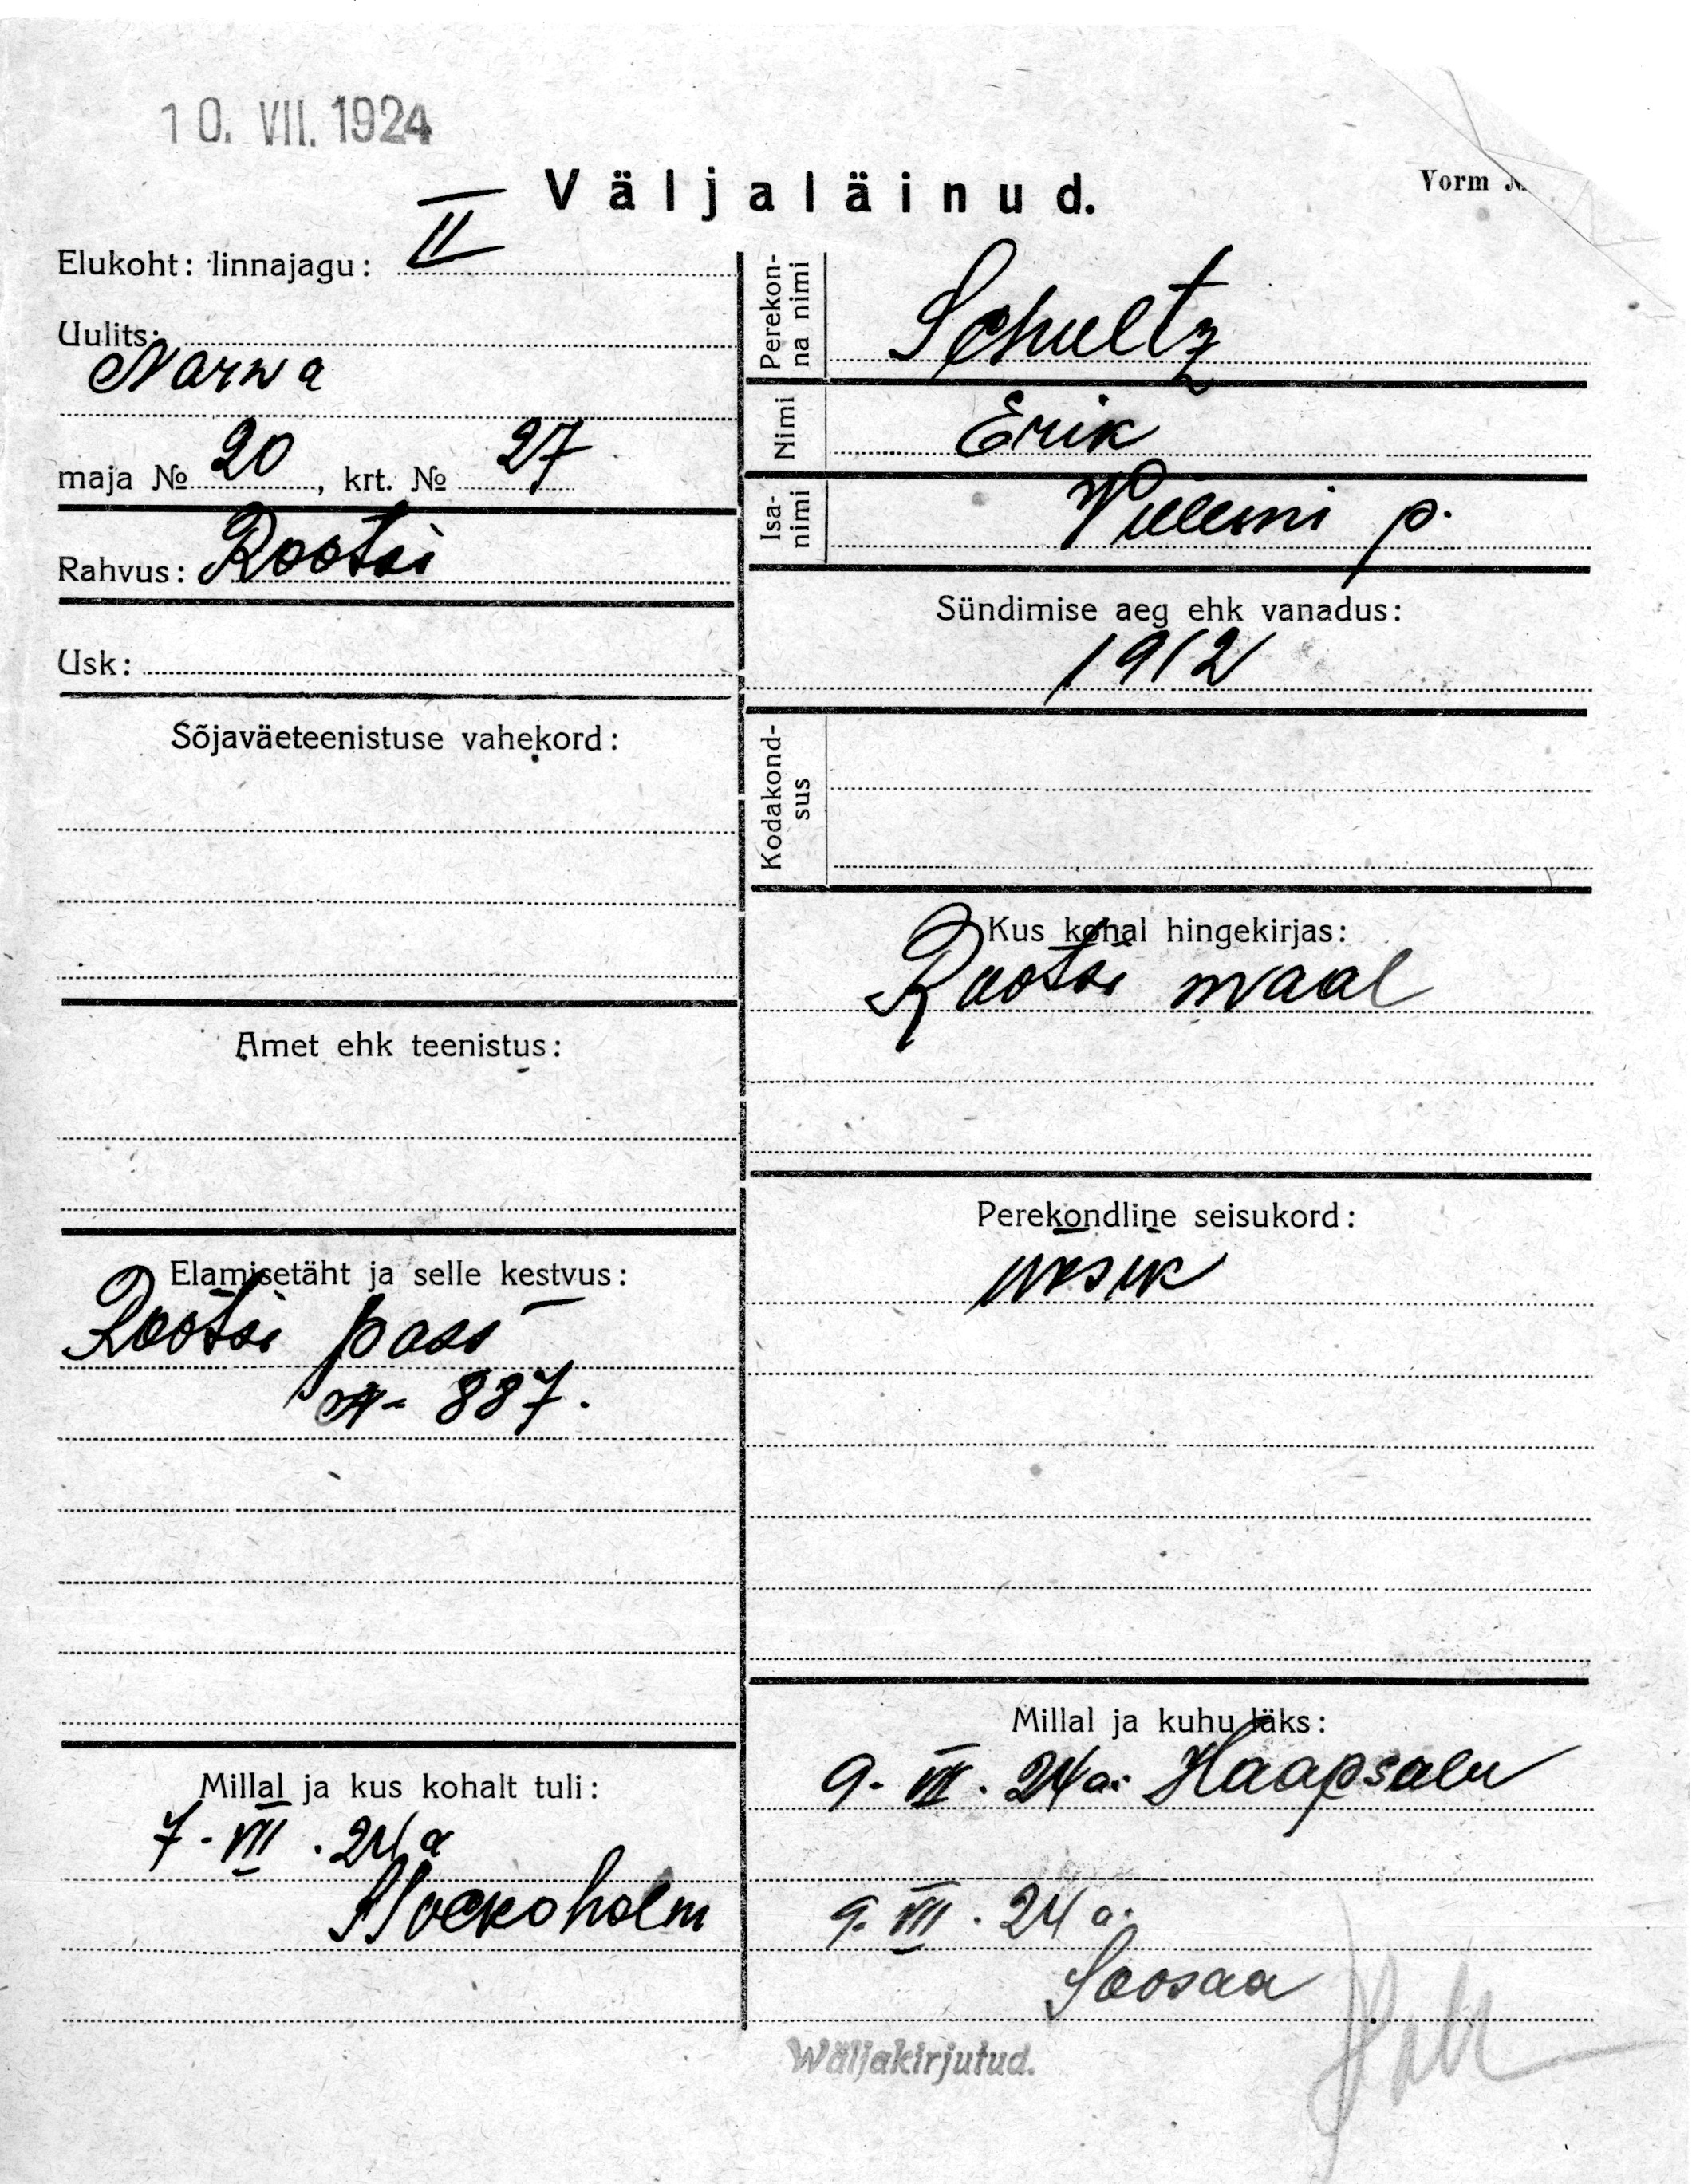 10. VII. 1924
Väljaläinud.
Vorm
Elukoht: linnajagu: II
Uulits:
Narwa
maja № 20, krt. № 27
Rahvus: Rootsi
Usk:
Sõjaväeteenistuse vahekord:
Amet ehk teenistus:
Elamisetäht ja selle kestvus:
Rootsi pass
A- 887.
Millal ja kus kohalt tuli:
7. VII. 24 a
Stockoholm
Perekonna nimi
Schultz
Nimi
Erik
Isanimi
Villemi p.
Sündimise aeg ehk vanadus:
1912
Kodakondsus
Kus kohal hingekirjas:
Rootsi maal
Perekondline seisukord:
Millal ja kuhu läks:
9. VII. 24 a. Haapsalu
9. VII. 24 a.
Soosaa
Wäljakirjutud.